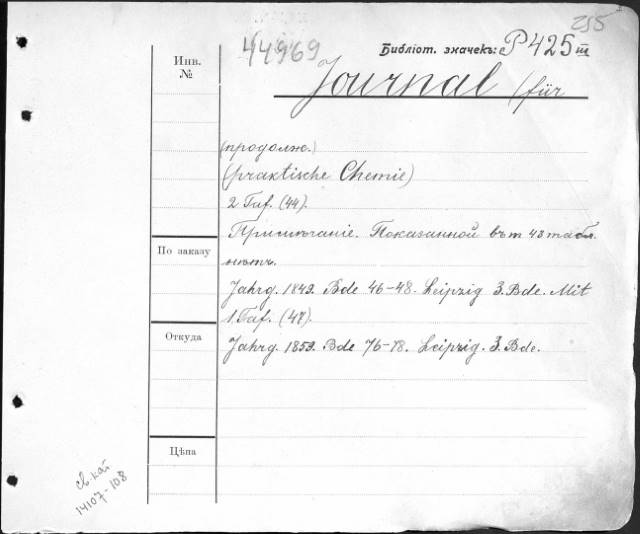 255
44969
Библіот. значекъ: P 425 III
Инв.
№
Journal (für
(продолж.)
(praktische Chemie)
2 Taf. (44).
Примѣчаніе. Показанной въ т 43 табл.
нѣтъ.
По заказу
Jahrg. 1849. Bde 46-48. Leipzig 3. Bde. Mit
1. Taf. (47).
Откуда
Jahrg. 1859. Bde 76-78. Leipzig. 3. Bde.
Цѣна
св. кат
14107-108